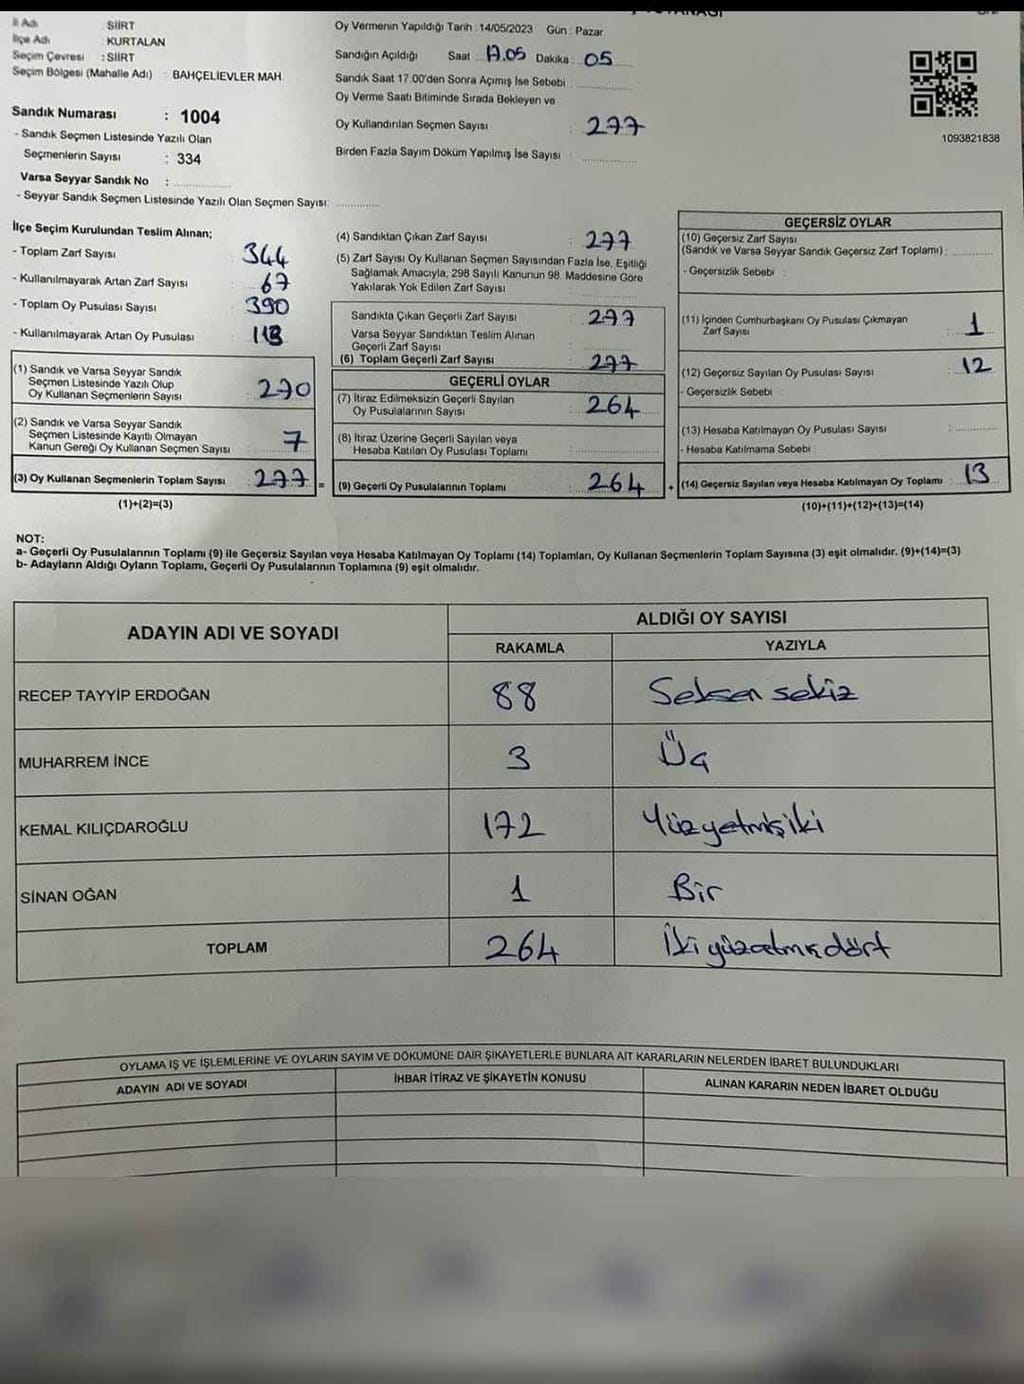 İl Adı : SİİRT
İlçe Adı : KURTALAN
Seçim Çevresi : SİİRT
Seçim Bölgesi (Mahalle Adı) : BAHÇELİEVLER MAH.
Sandık Numarası : 1004
- Sandık Seçmen Listesinde Yazılı Olan
Seçmenlerin Sayısı : 334
Varsa Seyyar Sandık No :
- Seyyar Sandık Seçmen Listesinde Yazılı Olan Seçmen Sayısı:
Oy Vermenin Yapıldığı Tarih : 14/05/2023 Gün : Pazar
Sandığın Açıldığı Saat : 17.05 Dakika : 05
Sandık Saat 17.00'den Sonra Açımış İse Sebebi :
Oy Verme Saati Bitiminde Sırada Bekleyen ve
Oy Kullandırılan Seçmen Sayısı : 277
Birden Fazla Sayım Döküm Yapılmış İse Sayısı :
1093821838
İlçe Seçim Kurulundan Teslim Alınan;
- Toplam Zarf Sayısı : 344
- Kullanılmayarak Artan Zarf Sayısı : 67
- Toplam Oy Pusulası Sayısı : 390
- Kullanılmayarak Artan Oy Pusulası : 113
(1) Sandık ve Varsa Seyyar Sandık
Seçmen Listesinde Yazılı Olup
Oy Kullanan Seçmenlerin Sayısı : 270
(2) Sandık ve Varsa Seyyar Sandık
Seçmen Listesinde Kayıtlı Olmayan
Kanun Gereği Oy Kullanan Seçmen Sayısı : 7
(3) Oy Kullanan Seçmenlerin Toplam Sayısı : 277 =
(1)+(2)=(3)
(4) Sandıktan Çıkan Zarf Sayısı : 277
(5) Zarf Sayısı Oy Kullanan Seçmen Sayısından Fazla İse, Eşitliği
Sağlamak Amacıyla, 298 Sayılı Kanunun 98. Maddesine Göre
Yakılarak Yok Edilen Zarf Sayısı :
Sandıkta Çıkan Geçerli Zarf Sayısı : 277
Varsa Seyyar Sandıktan Teslim Alınan
Geçerli Zarf Sayısı :
(6) Toplam Geçerli Zarf Sayısı : 277
GEÇERLİ OYLAR
(7) İtiraz Edilmeksizin Geçerli Sayılan
Oy Pusulalarının Sayısı : 264
(8) İtiraz Üzerine Geçerli Sayılan veya
Hesaba Katılan Oy Pusulası Toplamı :
(9) Geçerli Oy Pusulalarının Toplamı : 264 +
GEÇERSİZ OYLAR
(10) Geçersiz Zarf Sayısı
(Sandık ve Varsa Seyyar Sandık Geçersiz Zarf Toplamı) :
- Geçersizlik Sebebi :
(11) İçinden Cumhurbaşkanı Oy Pusulası Çıkmayan
Zarf Sayısı : 1
(12) Geçersiz Sayılan Oy Pusulası Sayısı : 12
- Geçersizlik Sebebi :
(13) Hesaba Katılmayan Oy Pusulası Sayısı :
- Hesaba Katılmama Sebebi
(14) Geçersiz Sayılan veya Hesaba Katılmayan Oy Toplamı : 13
(10)+(11)+(12)+(13)=(14)
NOT:
a- Geçerli Oy Pusulalarının Toplamı (9) ile Geçersiz Sayılan veya Hesaba Katılmayan Oy Toplamı (14) Toplamları, Oy Kullanan Seçmenlerin Toplam Sayısına (3) eşit olmalıdır. (9)+(14)=(3)
b- Adayların Aldığı Oyların Toplamı, Geçerli Oy Pusulalarının Toplamına (9) eşit olmalıdır.
ADAYIN ADI VE SOYADI ALDIĞI OY SAYISI
RAKAMLA YAZIYLA
RECEP TAYYİP ERDOĞAN 88 Seksen sekiz
MUHARREM İNCE 3 Üç
KEMAL KILIÇDAROĞLU 172 Yüzyetmişiki
SİNAN OĞAN 1 Bir
TOPLAM 264 İkiyüzatmışdört
OYLAMA İŞ VE İŞLEMLERİNE VE OYLARIN SAYIM VE DÖKÜMÜNE DAİR ŞİKAYETLERLE BUNLARA AİT KARARLARIN NELERDEN İBARET BULUNDUKLARI
ADAYIN ADI VE SOYADI İHBAR İTİRAZ VE ŞİKAYETİN KONUSU ALINAN KARARIN NEDEN İBARET OLDUĞU